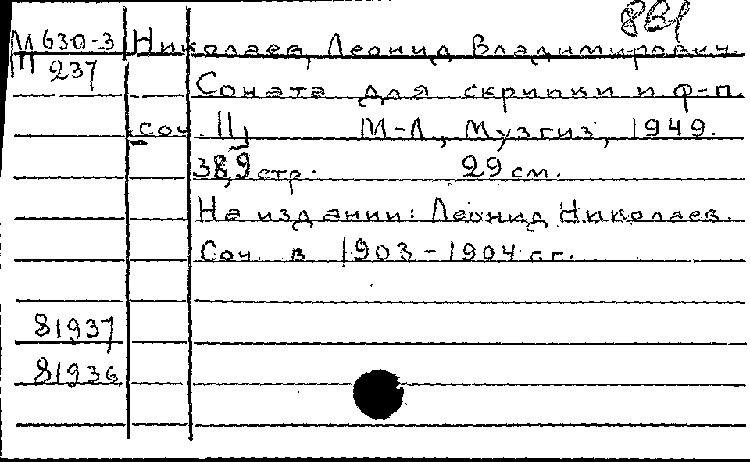 М 630-3 Николаев, Леонид Владимирович.
П 237
Соната для скрипки и ф-п.
соч. 11, М-Л, Музгиз, 1949.
38,9 стр. 29 см.
На издании: Леонид Николаев.
Соч в 1903-1904 гг.
81937
81936